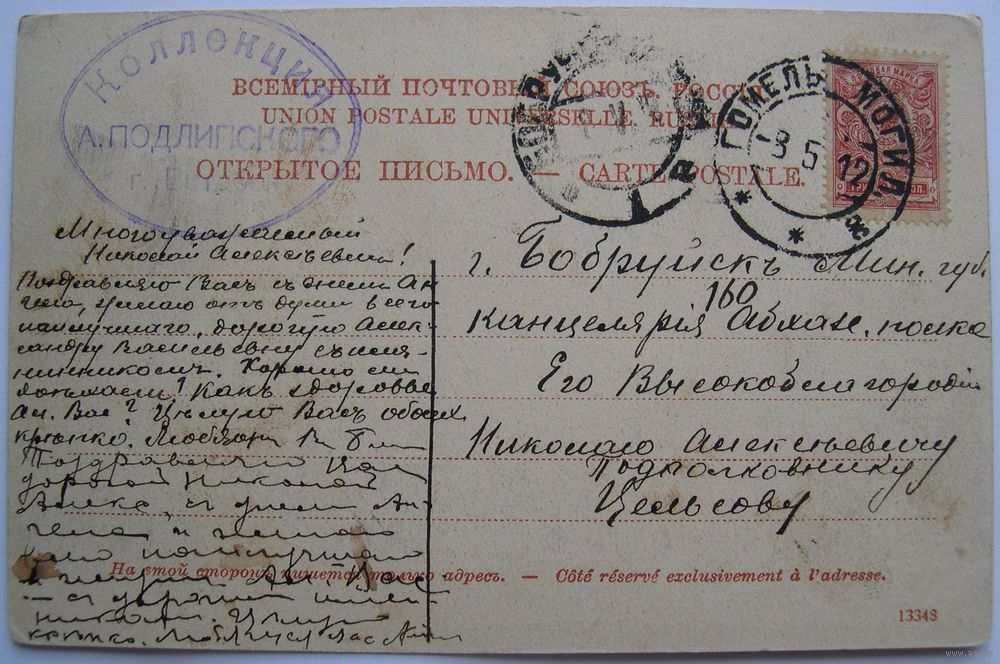 КОЛЛЕКЦИЯ
А. ПОДЛИПСКОГО
ВСЕМІРНЫЙ ПОЧТОВЫЙ СОЮЗЪ. РОССІЯ
UNION POSTALE UNIVERSELLE. RUSSIE
ОТКРЫТОЕ ПИСЬМО. — CARTE POSTALE.
ГОМЕЛЬ МОГИЛ.
3 5 12
Многоуважаемый
Николай Алексѣевичъ!
Поздравляю Васъ съ днемъ Ан-
гела, желаю отъ души всего
наилучшаго, дорогую Алек-
сандру Васильевну съ имен-
нинникомъ. Хорошо ли
доѣхали? Какъ здоровье
Ал. Вас? Цѣлую Васъ обоихъ
крѣпко.
Поздравляю
дорогой Николай
съ днемъ Ан-
гела и желаю
наилучшаго
съ дорогимъ имен-
никомъ.
крѣпко.
г. Бобруйскъ Мин. губ.
160
Канцелярія Абхаз. полка
Его Высокоблагородію
Николаю Алексѣевичу
Подполковнику
Цельсову
На этой сторонѣ пишется только адресъ. — Côté réservé exclusivement à l'adresse.
13348